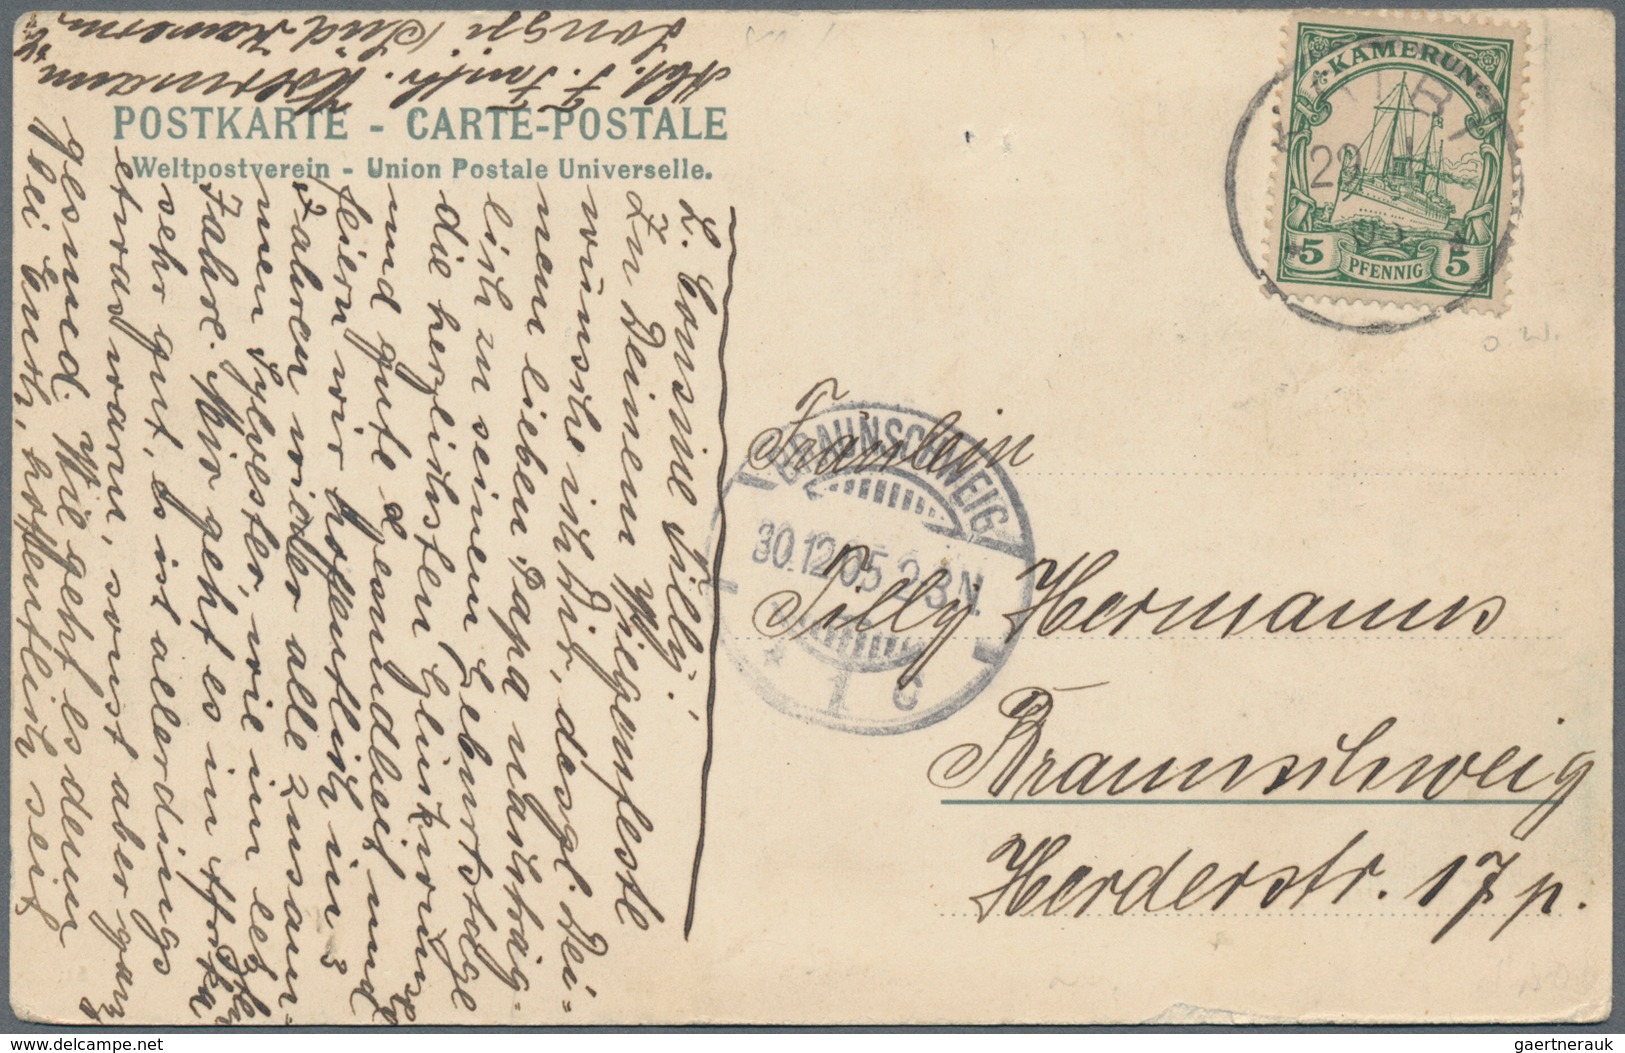 POSTKARTE - CARTE-POSTALE
Weltpostverein - Union Postale Universelle.
KAMERUN
5 PFENNIG 5
29
BRAUNSCHWEIG
30.12.05 2-3.N.
1 C
Fräulein
Tilly Hermanns
Braunschweig
Herderstr. 17 p.
L. Cousine Tilly!
Zu Deinem Wiegenfeste
wünsche ich Dir, desgl. Dei-
nem lieben Papa nachträg-
lich zu seinem Geburtstage
die herzlichsten Glückwünsche
und gute Gesundheit und
feiern wir hoffentlich in 3
Jahren wieder alle zusam-
men Sylvester, wie im letz
Jahre. Mir geht es in Afrika
sehr gut, es ist allerdings
etwas warm, sonst aber ganz
gesund. Wie geht es denn
bei Euch, hoffentlich seit
gaertnerauk